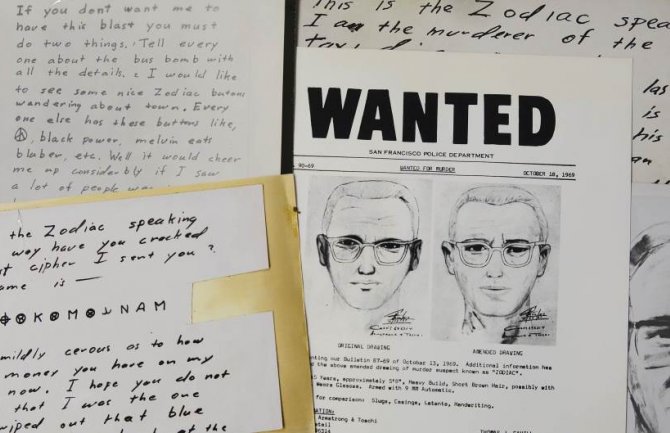 If you dont want me to
have this blast you must
do two things. Tell every
one about the bus bomb with
all the details. I would like
to see some nice Zodiac butons
wandering about town. Every
one else has these buttons like,
black power, melvin eats
bluber, etc. Well it would cheer
me up considerbly if I saw
a lot of people
This is the Zodiac
I am the murderer of the
las
is
his
an
the Zodiac speaking
way have you cracked
cipher I sent you?
ame is —
mildly cerous as to how
money you have on my
now. I hope you do not
that I was the one
wiped out that blue
at the
WANTED
SAN FRANCISCO POLICE DEPARTMENT
90-69 WANTED FOR MURDER OCTOBER 18, 1969
ORIGINAL DRAWING AMENDED DRAWING
our Bulletin 87-69 of October 13, 1969. Additional information has
the above amended drawing of murder suspect known as "ZODIAC".
Years, approximately 5'8", Heavy Build, Short Brown Hair, possibly with
Wears Glasses. Armed with 9 MM Automatic.
for comparison: Slugs, Casings, Latents, Handwriting.
Armstrong & Toschi